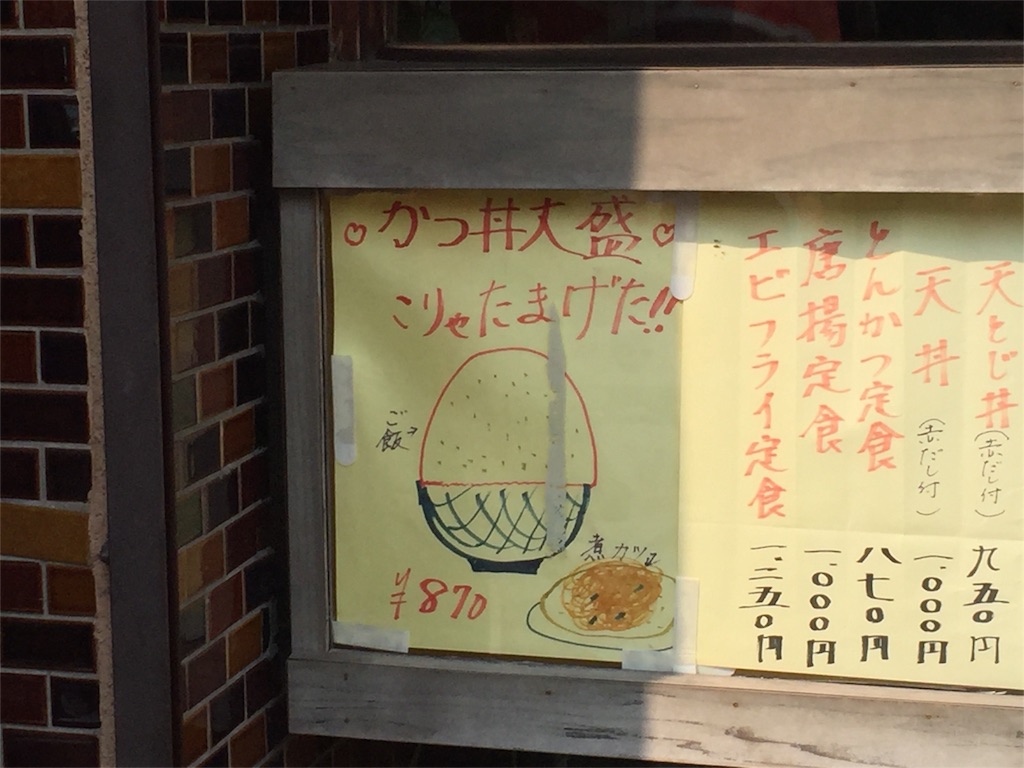 ♡かつ丼丈盛♡
こりゃたまげた!!
ご飯
煮カツ
¥870
天とじ丼(赤だし付) 九五〇円
天丼(赤だし付) 一、〇〇〇円
とんかつ定食 八七〇円
唐揚定食 一、〇〇〇円
エビフライ定食 一、二五〇円